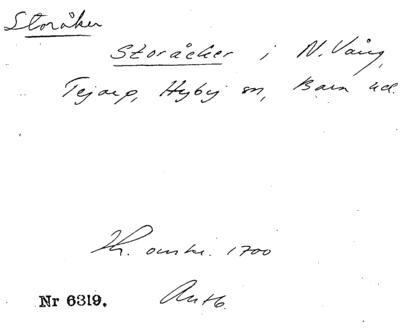 Storåker
Storåcker i N. Vång,
Tejarp, Hyby sn, Bara hd.
Kr. omkr. 1700
Nr 6319. Antb.